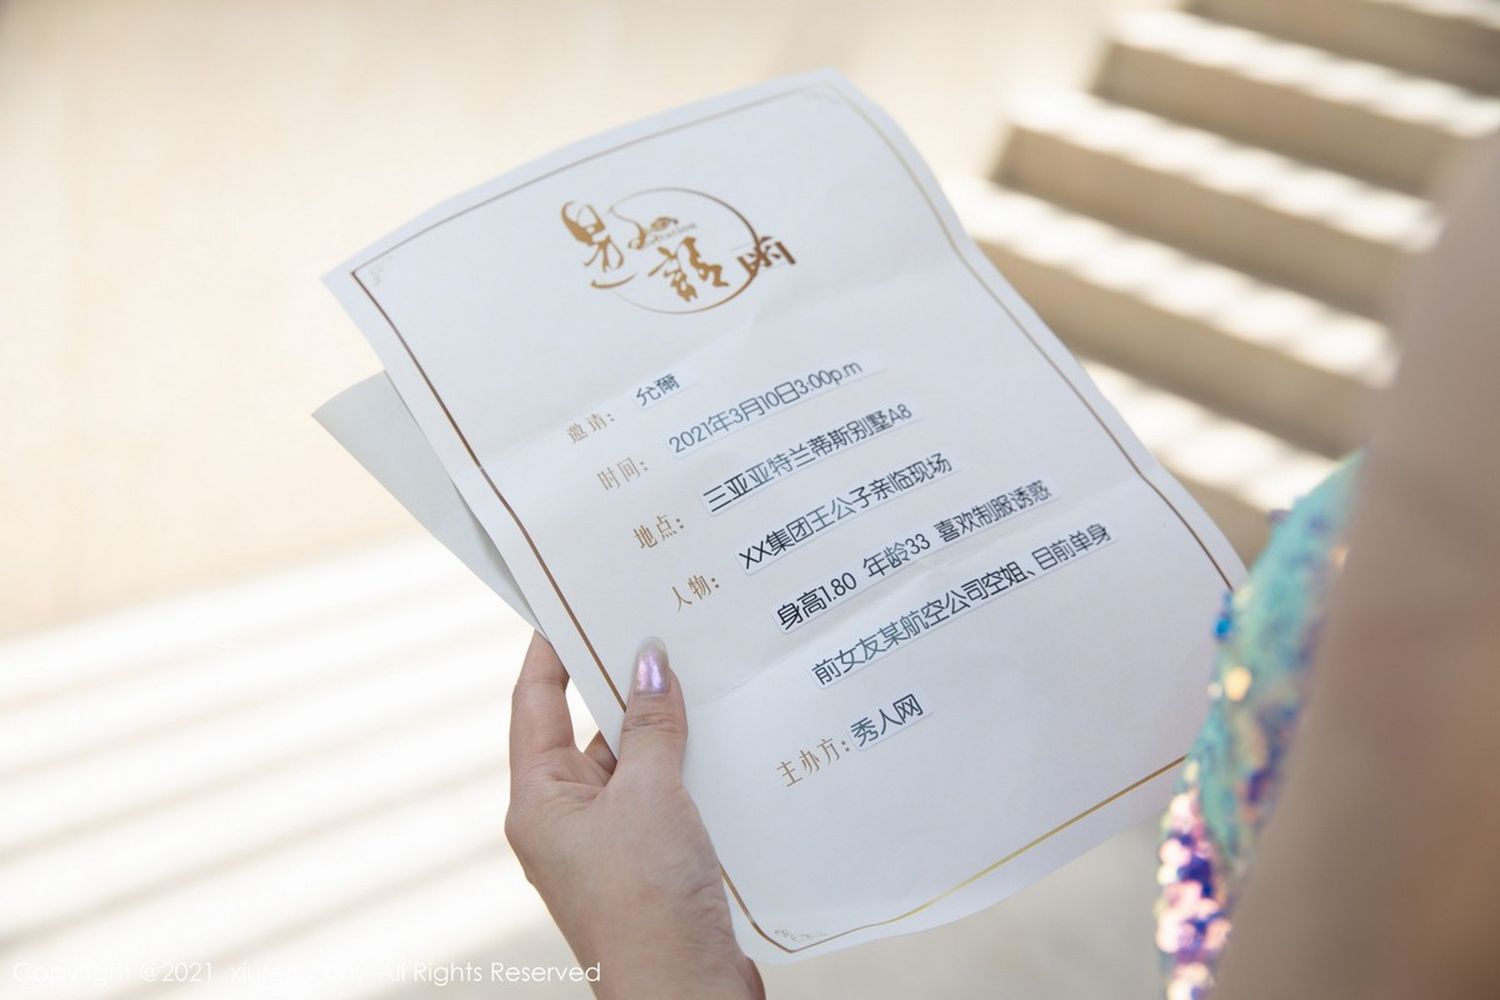 邀請函
Invitation
邀请：允爾
时间：2021年3月10日3:00p.m
地点：三亚亚特兰蒂斯别墅A8
人物：XX集团王公子亲临现场
身高1.80 年龄33 喜欢制服诱惑
前女友某航空公司空姐、目前单身
主办方：秀人网
Copyright @2021 xiuren.com All Rights Reserved